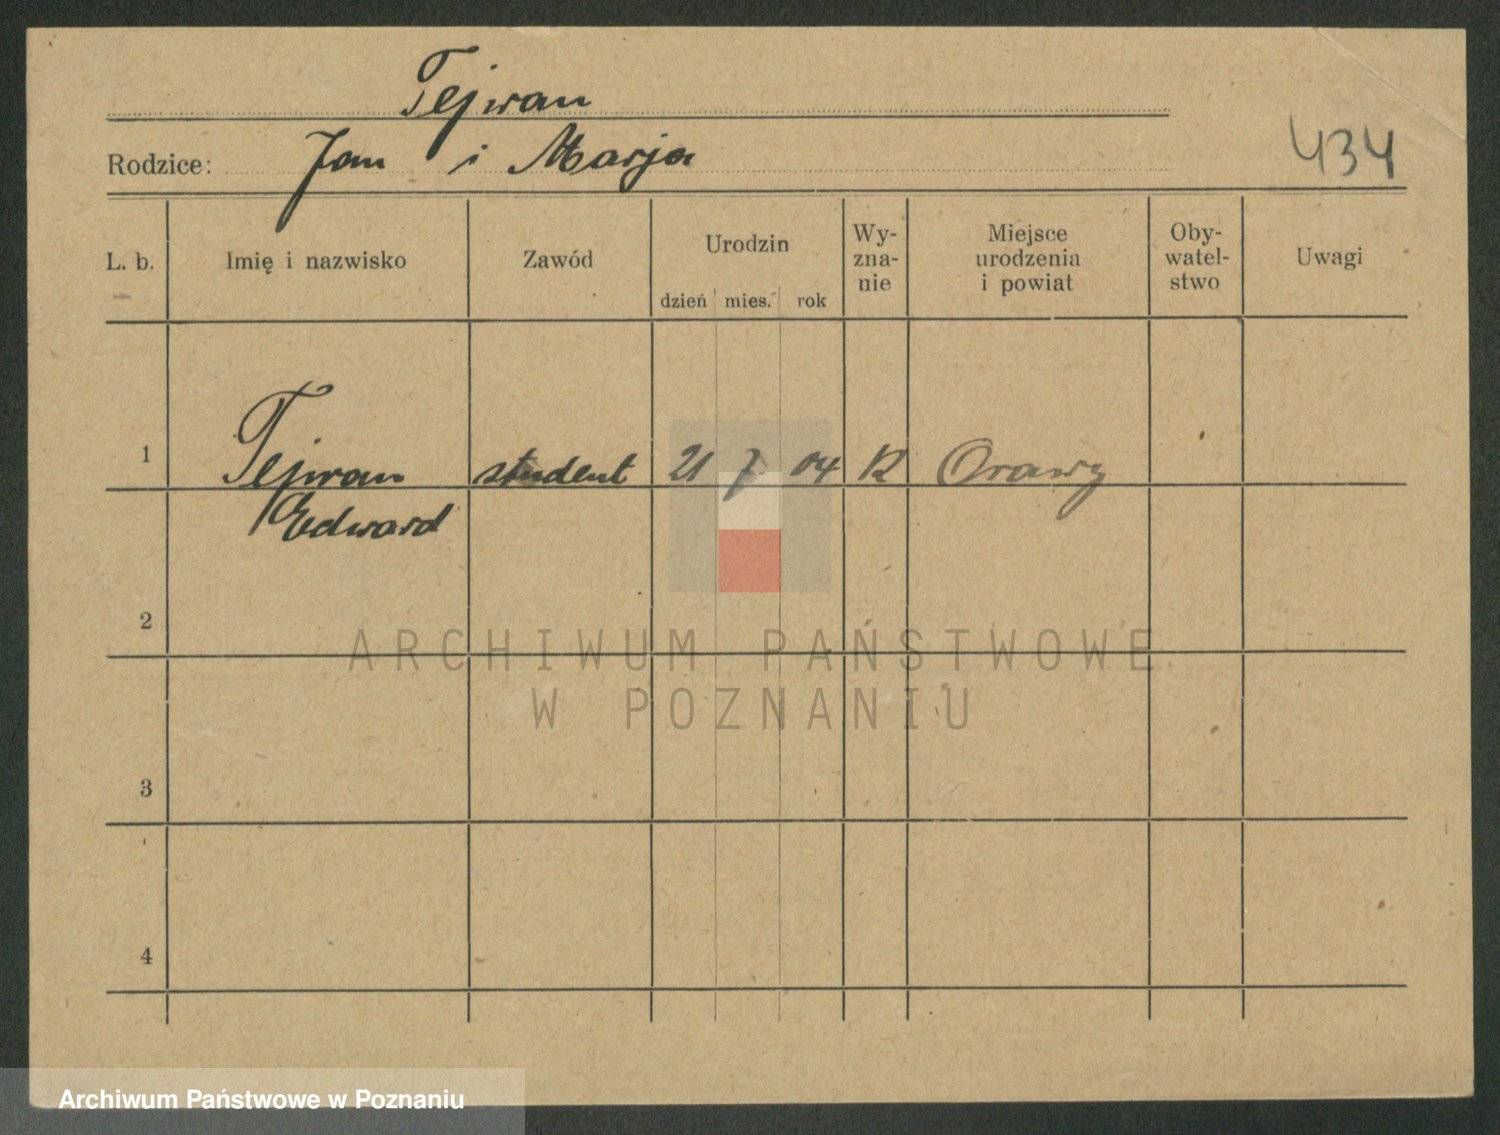 Tejwan
Rodzice: Jan i Marja
434
L. b. Imię i nazwisko Zawód Urodzin dzień mies. rok Wy-zna-nie Miejsce urodzenia i powiat Oby-watel-stwo Uwagi
1 Tejwan student 21 7 04 R Orawy
Edward
2
ARCHIWUM PAŃSTWOWE
W POZNANIU
3
4
Archiwum Państwowe w Poznaniu